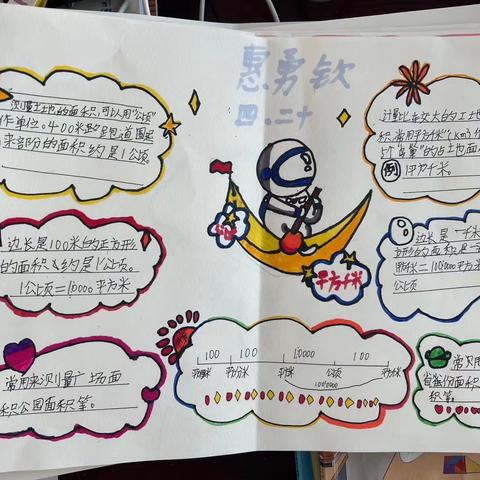 惠勇钦
四.二十
测量土地的面积,可以用"公顷"
作单位。400米跑道围起
来部分的面积约是1公顷。
边长是100米的正方形
的面积约是1公顷。
1公顷=10000平方米
常用来测量广场面
积公园面积等。
公顷
平方千米
计量比较大的土地
积,常用平方千米(km²)作
例
1平方千米。
边长是一千米
方形的面积是一
公顷
常用
省省份面积
积等
100 100 10000 100
平方厘米 平方分米 平方米 公顷 平方千米
1000000